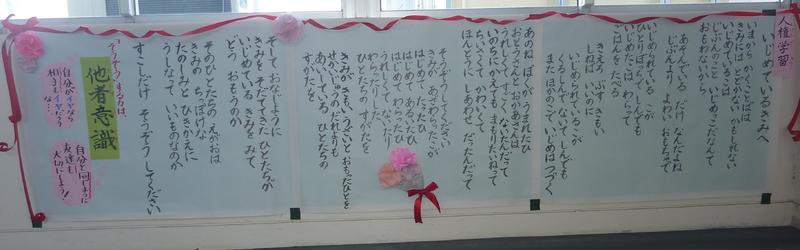 人権学習
いじめているきみへ
いまから かくことばは
きみには とどかない かもしれない
いじめてることは
いじめっこだなんて
おもわないから
あそんでいる だけ なんだよね
じぶんより よわい おもちゃで
いじめられている こが
ひとりぼっちで しんでも
いじめたこは わらって
ごはんを たべる
きえろ ぶす きもい
しねば いいのに
いじめられているこが
くるしんで ないて しんでも
また ほかのこで いじめは つづく
あのね ぼくが うまれたひ
おとうさんと おかあさんは
うれしくて ないたんだって
いのちにかえても まもりたいねって
ちいさくて かわいくて
ほんとうに しあわせ だったんだって
そうぞうしてください
きみが あざわらったこが
はじめて たったひ
はじめて あるいたひ
はじめて わらったひ
うれしくて ないたり
わらったりした
ひとたちの すがたを
きみが きもい うざいと おもったひとを
せかいの だれよりも
あいしている ひとたちの
すがたを
そして おなじように
きみを そだててきた ひとたちが
いじめている きみを みて
どう おもうのか
そのひとたちの えがおは
きみの ちっぽけな
たのしみと ひきかえに
うしなって いいものなのか
すこしだけ そうぞう してください
他者意識
自分がイヤなら
相手もイヤだろう
な…
自分と同じように
友達も
大切にしよう!